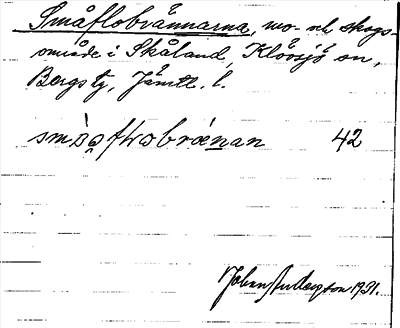 Småflobrännarna, mo- och skogs-
område i Skåland, Klövsjö sn,
Bergs tg, Jämtl. l.
småflobrænan 42
Johan Anderzson 1931.